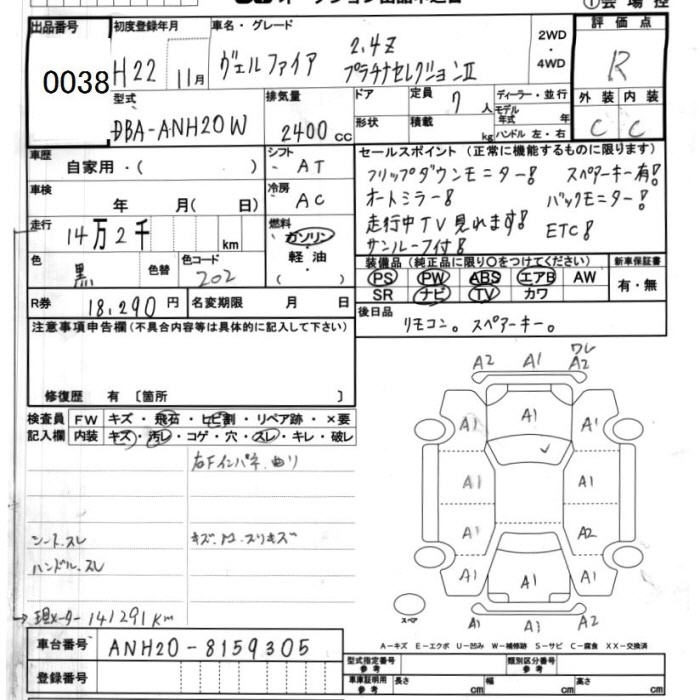 ①会場控
出品番号 0038
初度登録年月 H22 11月
車名・グレード ヴェルファイア 2.4Z プラチナセレクションⅡ
2WD・4WD
評価点 R
外装 C 内装 C
型式 DBA-ANH20W
排気量 2400cc
ドア
形状
定員 7人
積載 kg
ディーラー・並行
モデル年式 年
ハンドル 左・右
車歴 自家用・( )
シフト AT
車検 年 月( 日)
冷房 AC
走行 14万2千 km
燃料 ガソリン・軽油・( )
色 黒
色替
色コード 202
R券 18,290円
名変期限 月 日
セールスポイント(正常に機能するものに限ります)
フリップダウンモニター! スペアーキー有!
オートミラー! バックモニター!
走行中TV見れます! ETC!
サンルーフ付!
装備品(純正品に限り○をつけてください)
PS PW ABS エアB AW
SR ナビ TV カワ
新車保証書 有・無
後日品 リモコン。スペアーキー。
注意事項申告欄(不具合内容等は具体的に記入して下さい)
修復歴 有 〔箇所 〕
検査員記入欄
FW キズ・飛石・ヒビ割・リペア跡・×要
内装 キズ・汚レ・コゲ・穴・スレ・キレ・破レ
右Fインパネ.曲リ
シート.スレ
ハンドル.スレ
現メーター141291Km
A2 A1 ワレ A2
A1 A1 A1
A1 A1
A1 A2
A1 A1 A1
A1 A1 A2
スペア
A-キズ E-エクボ U-凹み W-補修跡 S-サビ C-腐食 XX-交換済
車台番号 ANH20-8159305
登録番号
型式指定番号 参考
類別区分番号 参考
車庫証明用 参考 長さ cm 幅 cm 高さ cm